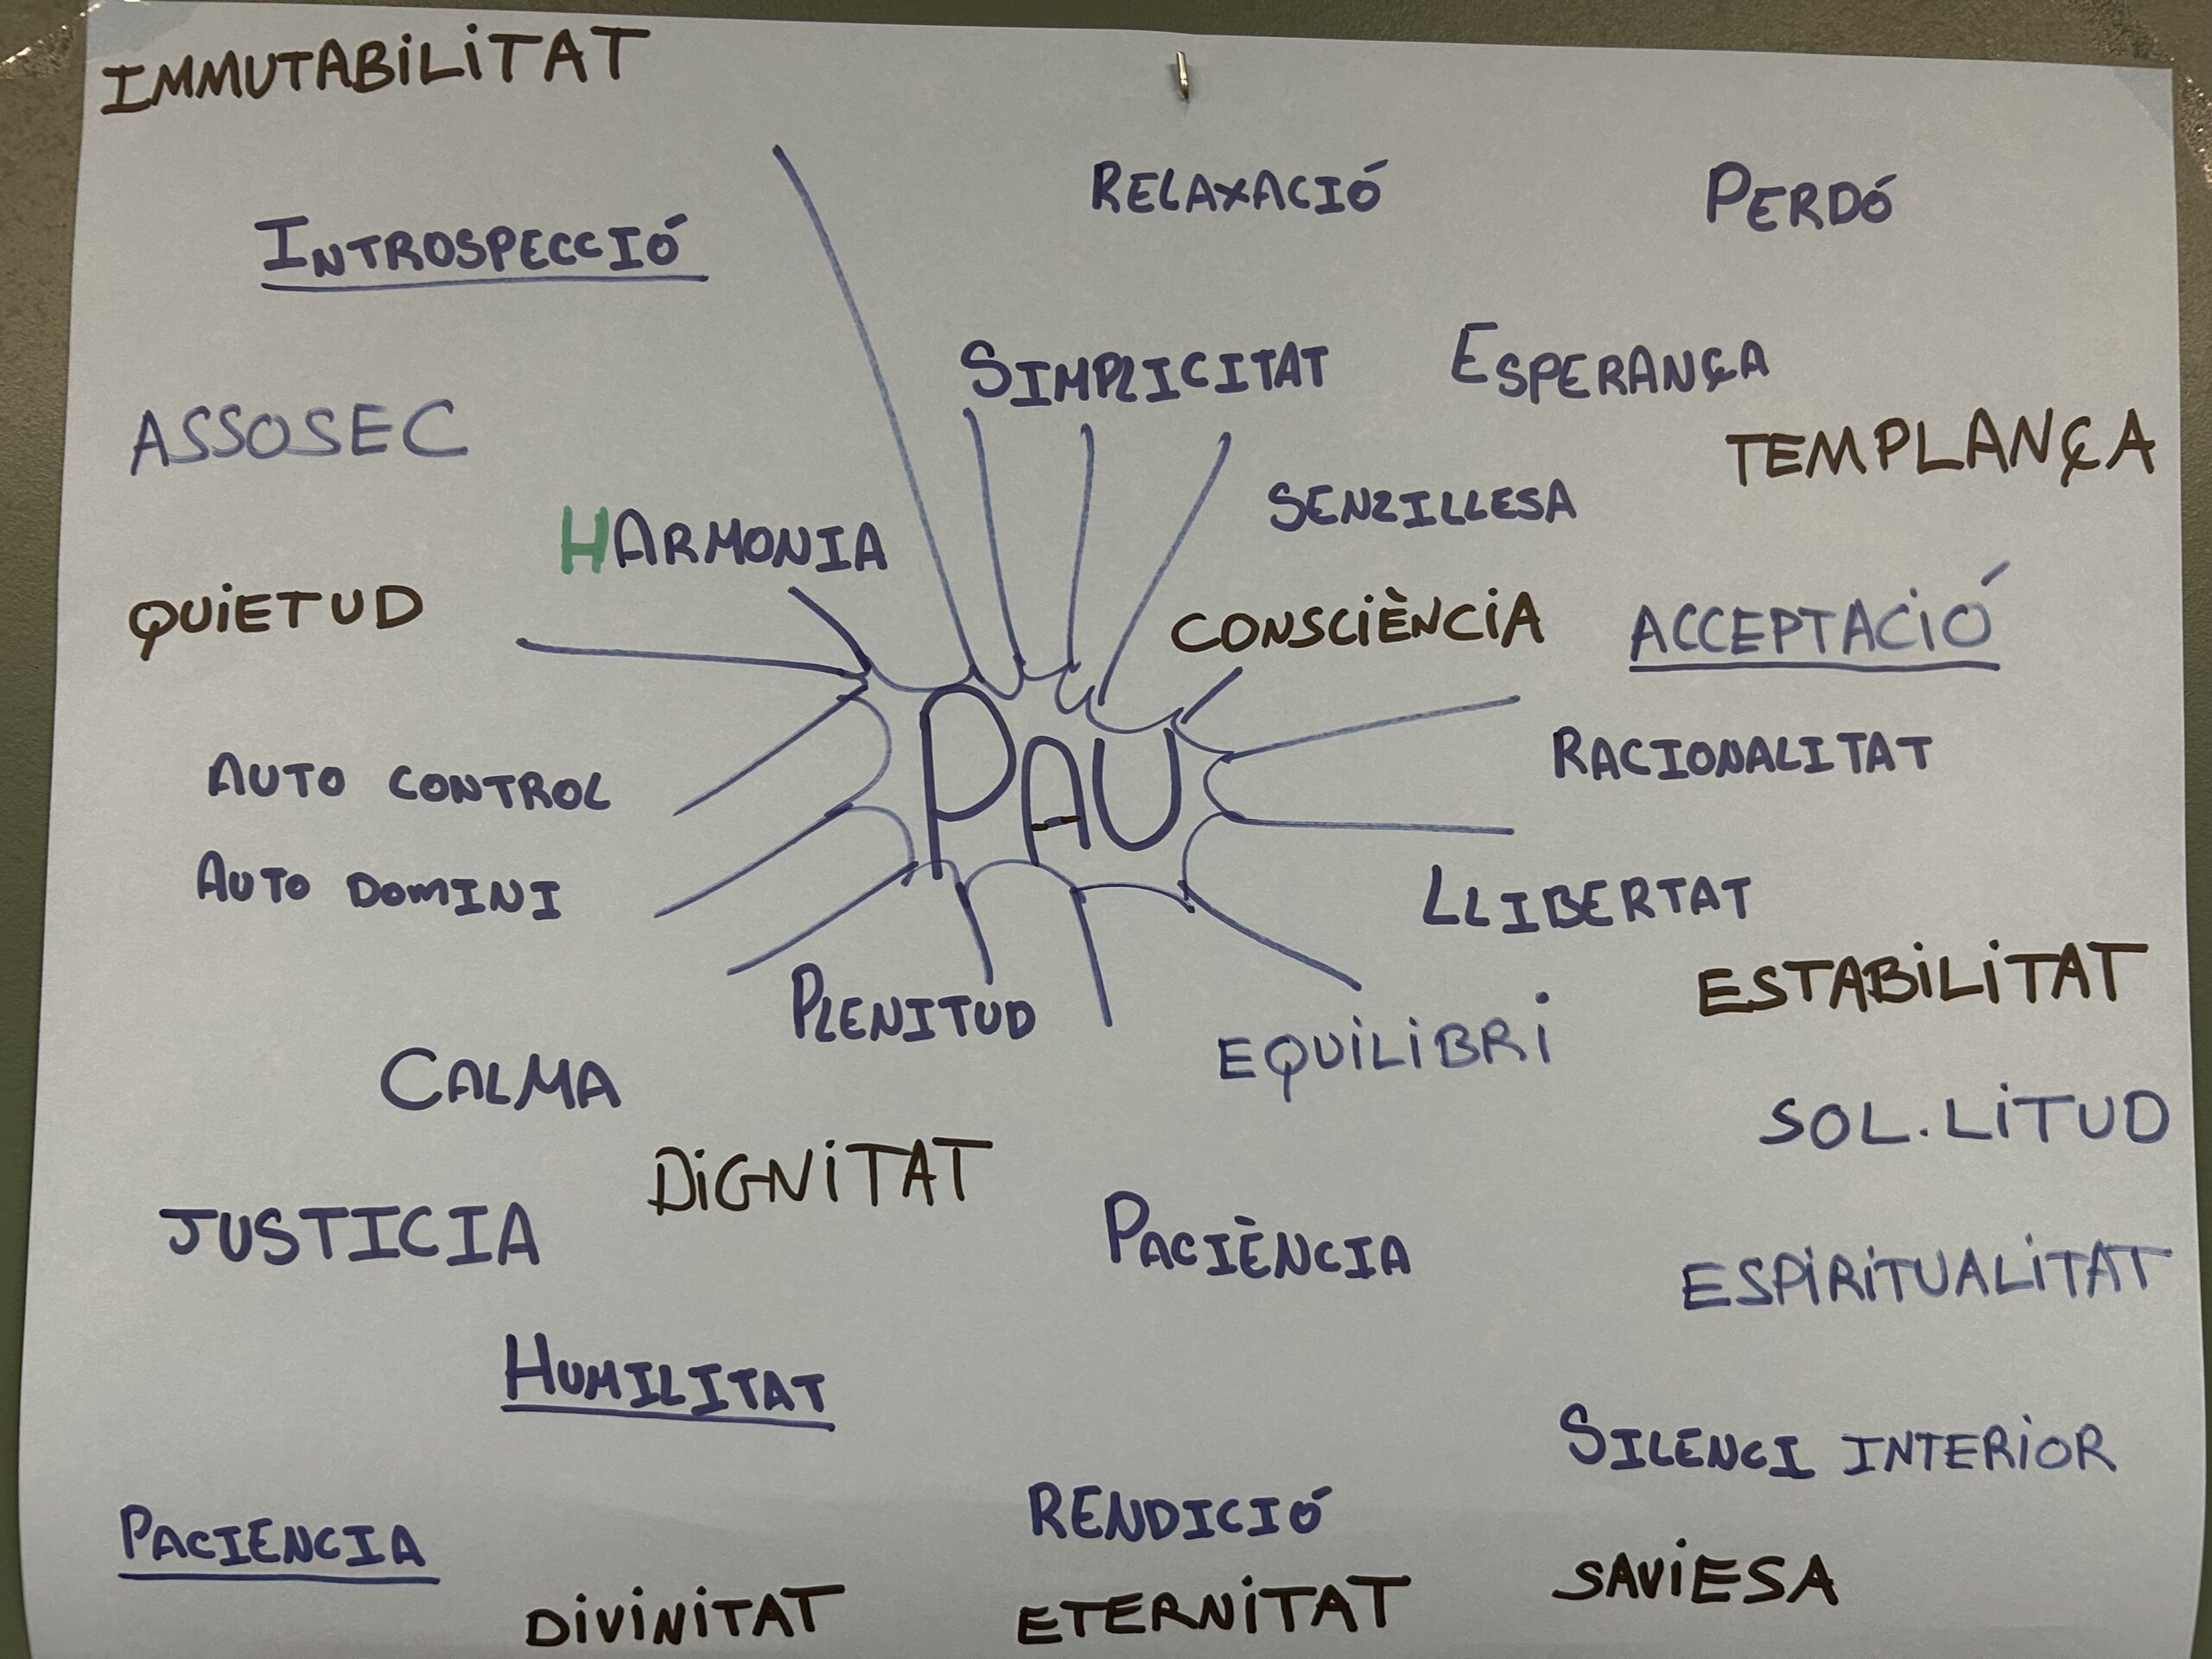 IMMUTABILITAT
RELAXACIÓ
PERDÓ
INTROSPECCIÓ
SIMPLICITAT
ESPERANÇA
ASSOSEC
TEMPLANÇA
SENZILLESA
HARMONIA
QUIETUD
CONSCIÈNCIA
ACCEPTACIÓ
PAU
RACIONALITAT
AUTO CONTROL
AUTO DOMINI
LLIBERTAT
ESTABILITAT
PLENITUD
EQUILIBRI
CALMA
SOL.LITUD
DIGNITAT
JUSTICIA
PACIÈNCIA
ESPIRITUALITAT
HUMILITAT
SILENCI INTERIOR
RENDICIÓ
PACIENCIA
SAVIESA
DIVINITAT
ETERNITAT